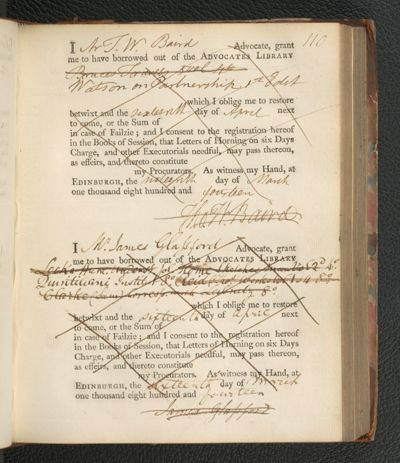 110
I Mr T. W. Baird Advocate, grant
me to have borrowed out of the ADVOCATES LIBRARY
Watson on Partnership 1st Edit
which I oblige me to restore
betwixt and the sixteenth day of April next
to come, or the Sum of
in case of Failzie ; and I consent to the registration hereof
in the Books of Session, that Letters of Horning on six Days
Charge, and other Executorials needful, may pass thereon,
as effeirs, and thereto constitute
my Procurators. As witness my Hand, at
EDINBURGH, the sixteenth day of March
one thousand eight hundred and fourteen
Tho W Baird
I Mr. James Glassford Advocate, grant
me to have borrowed out of the ADVOCATES LIBRARY
Home
Clarke
which I oblige me to restore
betwixt and the sixteenth day of April next
to come, or the Sum of
in case of Failzie ; and I consent to the registration hereof
in the Books of Session, that Letters of Horning on six Days
Charge, and other Executorials needful, may pass thereon,
as effeirs, and thereto constitute
my Procurators. As witness my Hand, at
EDINBURGH, the sixteenth day of March
one thousand eight hundred and fourteen
James Glassford